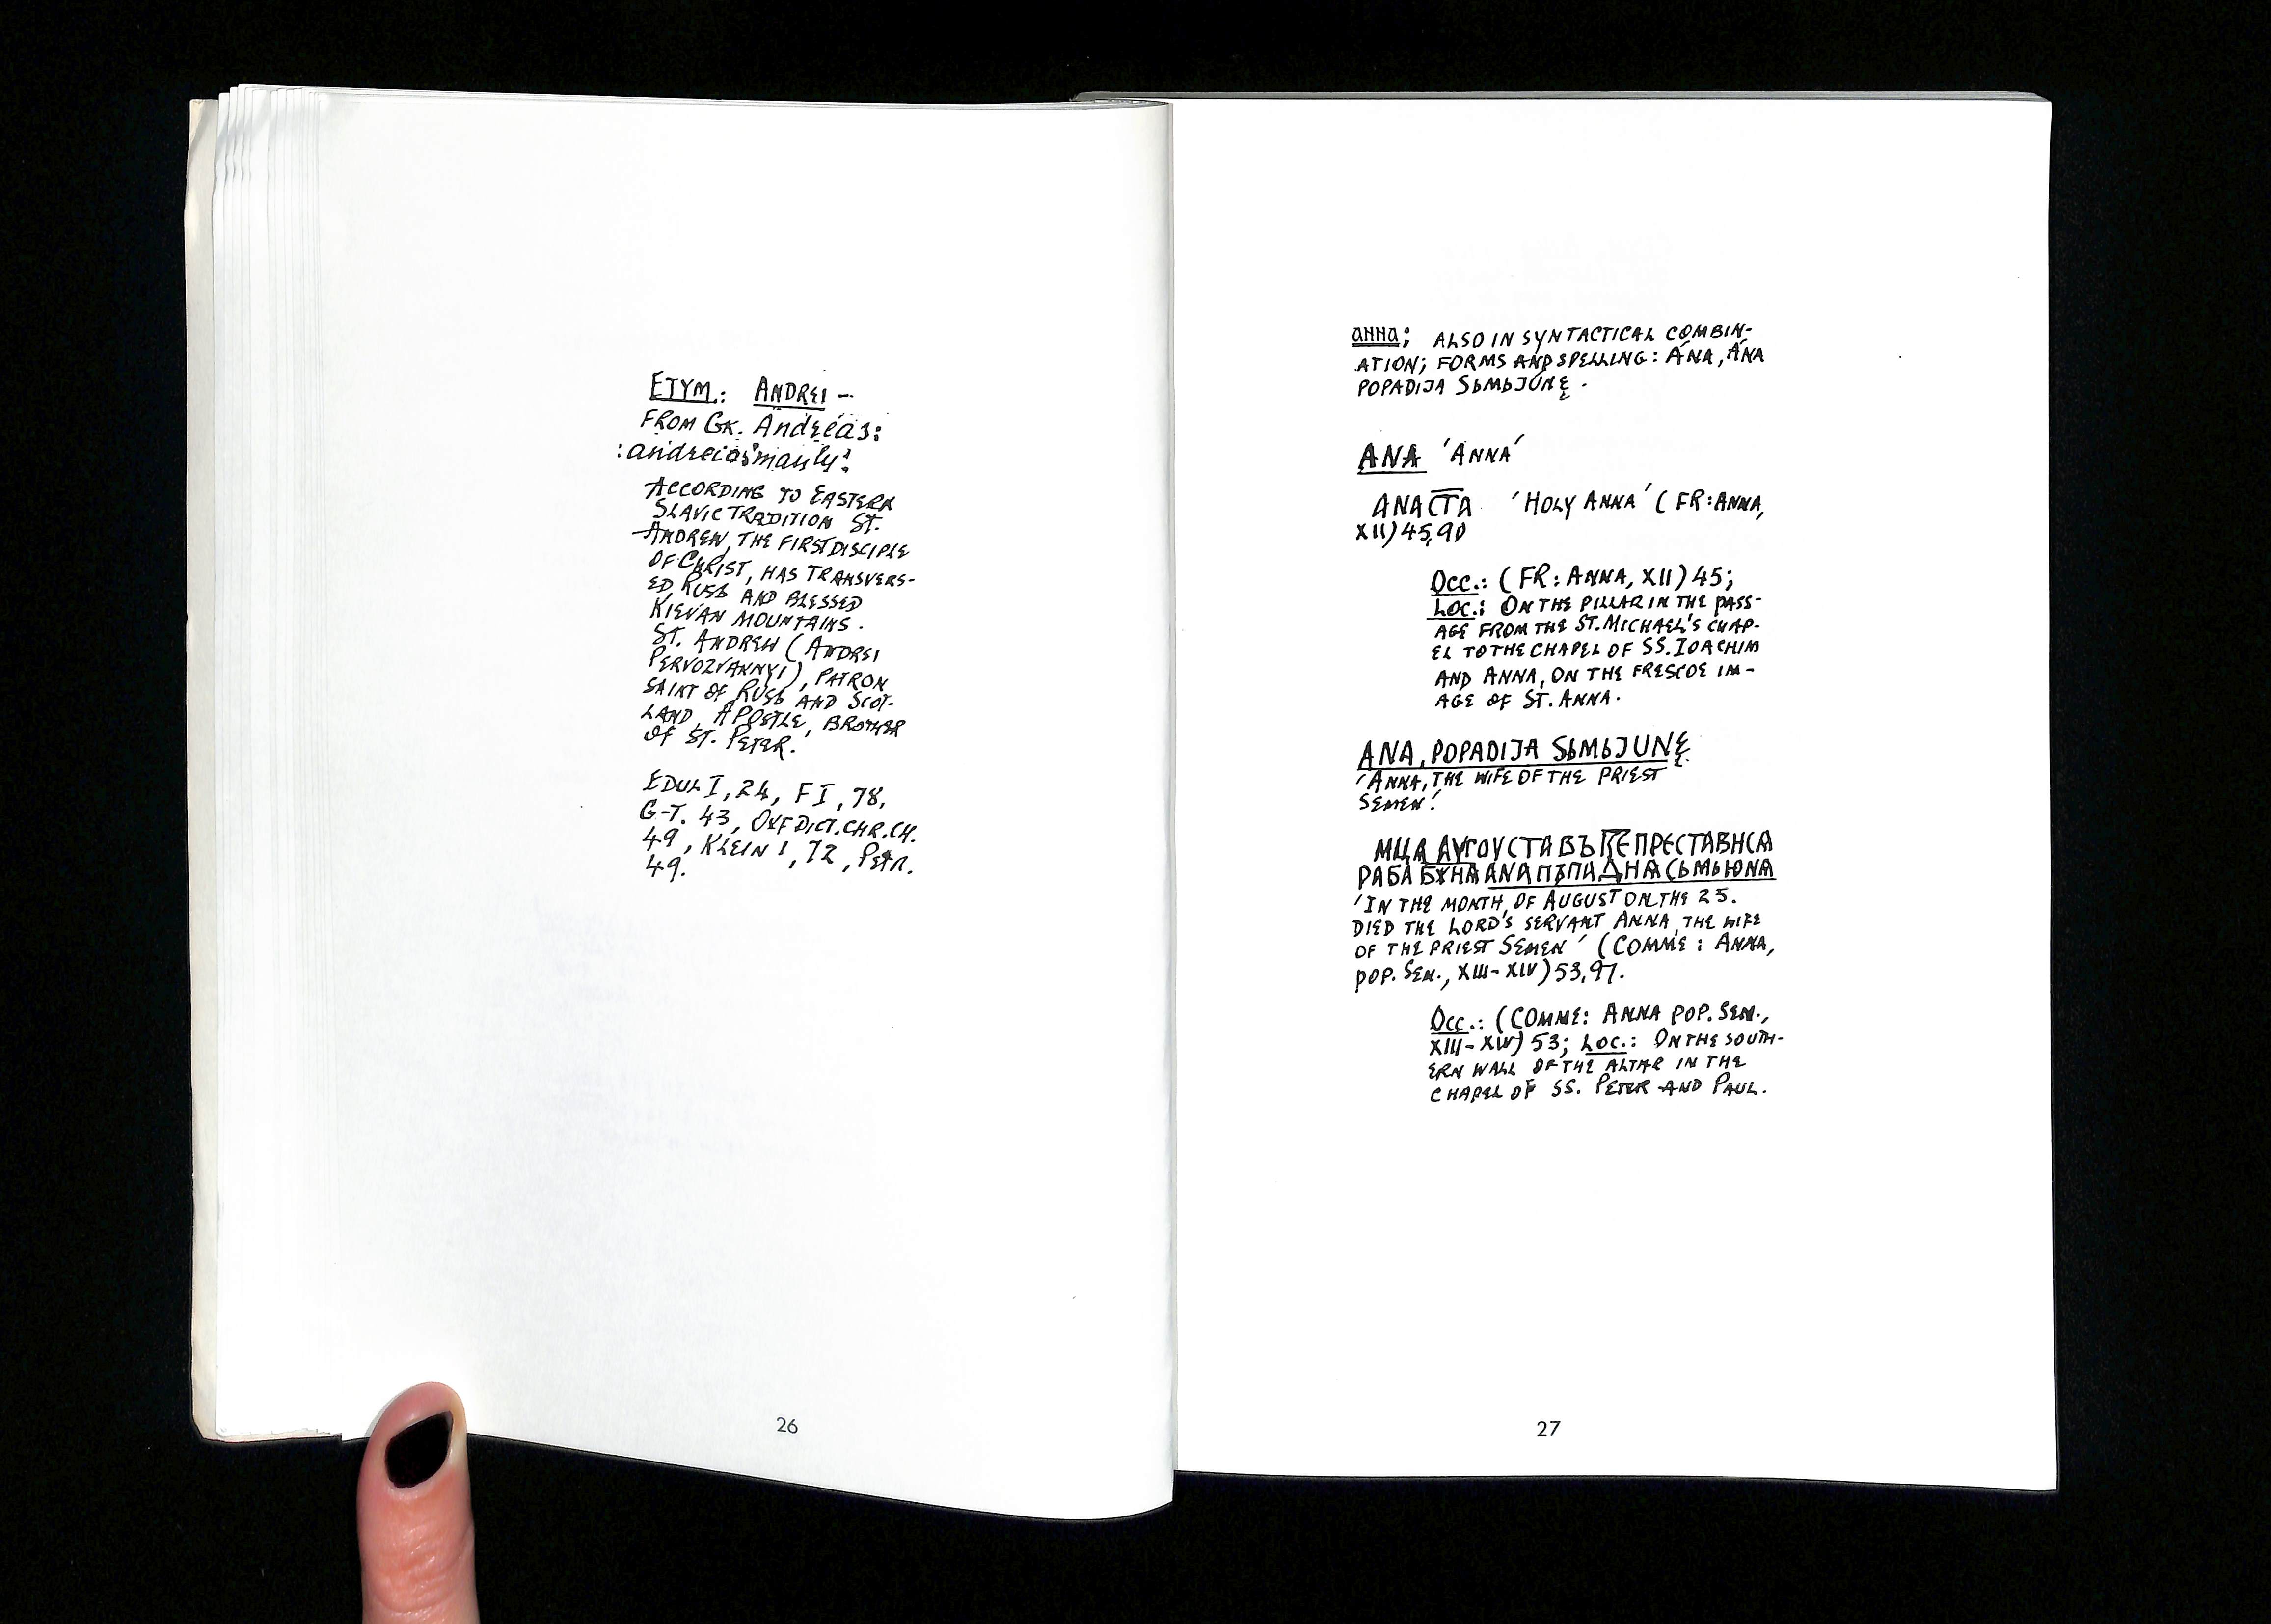 ETYM.: ANDREI –
FROM GK. Andréas:
:andreios 'manly'.
ACCORDING TO EASTERN
SLAVIC TRADITION ST.
ANDREW, THE FIRST DISCIPLE
OF CHRIST, HAS TRANSVERS-
ED RUSЬ AND BLESSED
KIEVAN MOUNTAINS.
ST. ANDREW (ANDREI
PERVOZVANNYI), PATRON
SAINT OF RUSЬ AND SCOT-
LAND, APOSTLE, BROTHER
OF ST. PETER.
EDUL I, 24, F I, 78,
G-T. 43, OXF DICT. CHR. CH.
49, KLEIN I, 72, PETR.
49.
26
анна; ALSO IN SYNTACTICAL COMBIN-
ATION; FORMS AND SPELLING: ÁNA, ÁNA
POPADIJA SЬMЬJÚNĘ.
ANA 'ANNA'
ANAC͞TA 'HOLY ANNA' (FR: ANNA,
XII) 45, 90
OCC.: (FR: ANNA, XII) 45;
LOC.: ON THE PILLAR IN THE PASS-
AGE FROM THE ST. MICHAEL'S CHAP-
EL TO THE CHAPEL OF SS. IOACHIM
AND ANNA, ON THE FRESCOE IM-
AGE OF ST. ANNA.
ANA, POPADIJA SЬMЬJUNĘ
'ANNA, THE WIFE OF THE PRIEST
SEMEN'.
МЦѦ АѴГОУСТА ВЪ К͞Е ПРЕСТАВНСѦ
РАБА БЖНѦ АNА ПЪПАДНѦ СЬМЬЮNѦ
'IN THE MONTH OF AUGUST ON THE 25.
DIED THE LORD'S SERVANT ANNA, THE WIFE
OF THE PRIEST SEMEN' (COMME: ANNA,
POP. SEM., XIII-XIV) 53, 97.
OCC.: (COMME: ANNA POP. SEM.,
XIII-XIV) 53; LOC.: ON THE SOUTH-
ERN WALL OF THE ALTAR IN THE
CHAPEL OF SS. PETER AND PAUL.
27